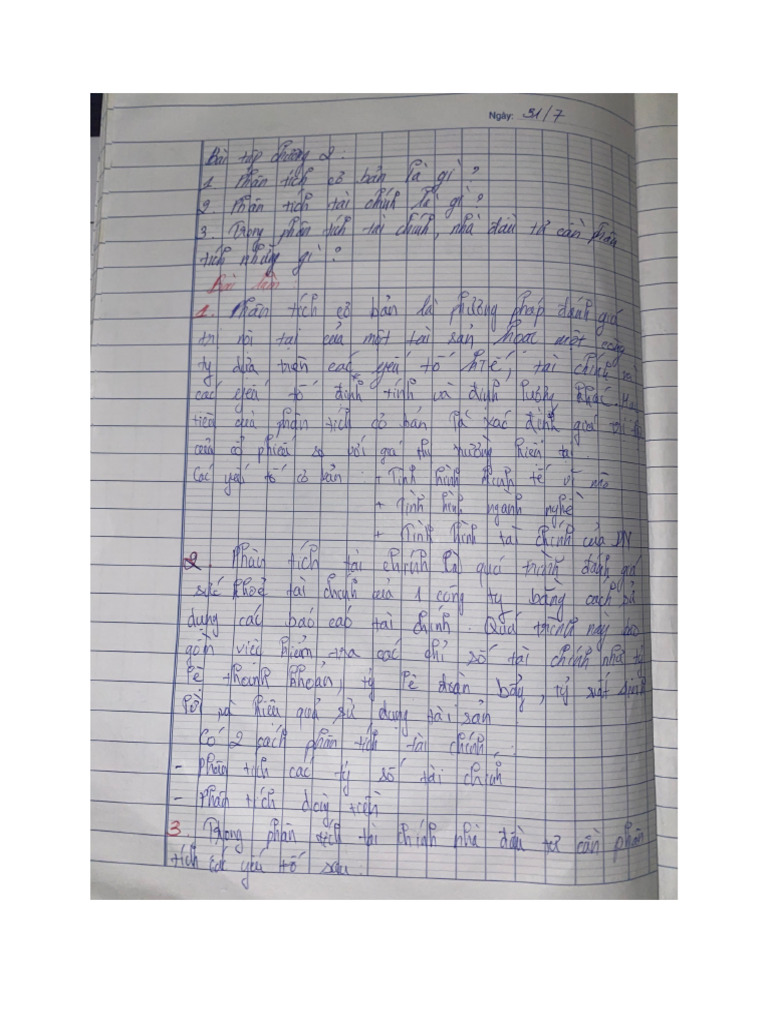 Ngày: 31/7
Bài tập chương 2:
1. Phân tích cơ bản là gì?
2. Phân tích tài chính là gì?
3. Trong phân tích tài chính, nhà đầu tư cần phân
tích những gì?
Bài làm
1. Phân tích cơ bản là phương pháp đánh giá
trị nội tại của một tài sản hoặc một công
ty dựa trên các yếu tố KTế, tài chính và
các yếu tố định tính và định lượng khác. Mục
tiêu của phân tích cơ bản là xác định giá trị
của cổ phiếu so với giá thị trường hiện tại.
Các yếu tố cơ bản: + Tình hình kinh tế vĩ mô
+ Tình hình ngành nghề
+ Tình hình tài chính của DN
2. Phân tích tài chính là quá trình đánh giá
sức khoẻ tài chính của 1 công ty bằng cách sử
dụng các báo cáo tài chính. Quá trình này bao
gồm việc kiểm tra các chỉ số tài chính như tỷ
lệ thanh khoản, tỷ lệ đoàn bẩy, tỷ suất sinh
lời, và hiệu quả sử dụng tài sản
Có 2 cách phân tích tài chính:
- Phân tích các tỷ số tài chính
- Phân tích dòng tiền
3. Trong phân tích tài chính nhà đầu tư cần phân
tích các yếu tố sau: